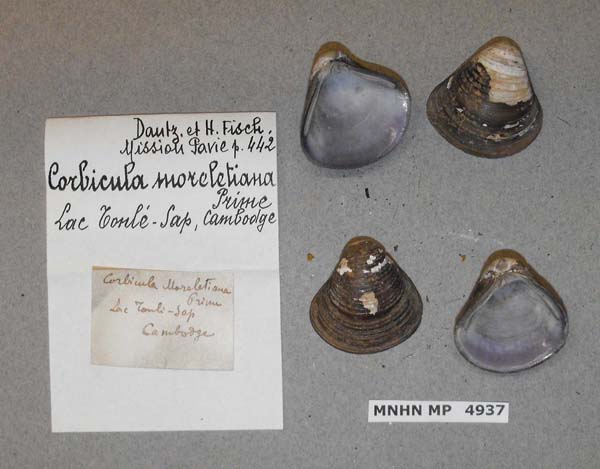 Dautz. et H. Fisch.
Mission Pavie p. 442
Corbicula moreletiana
Prime
Lac Tonlé-Sap, Cambodge
Corbicula Moreletiana
Prime
Lac Tonli-Sap
Cambodge
MNHN MP 4937